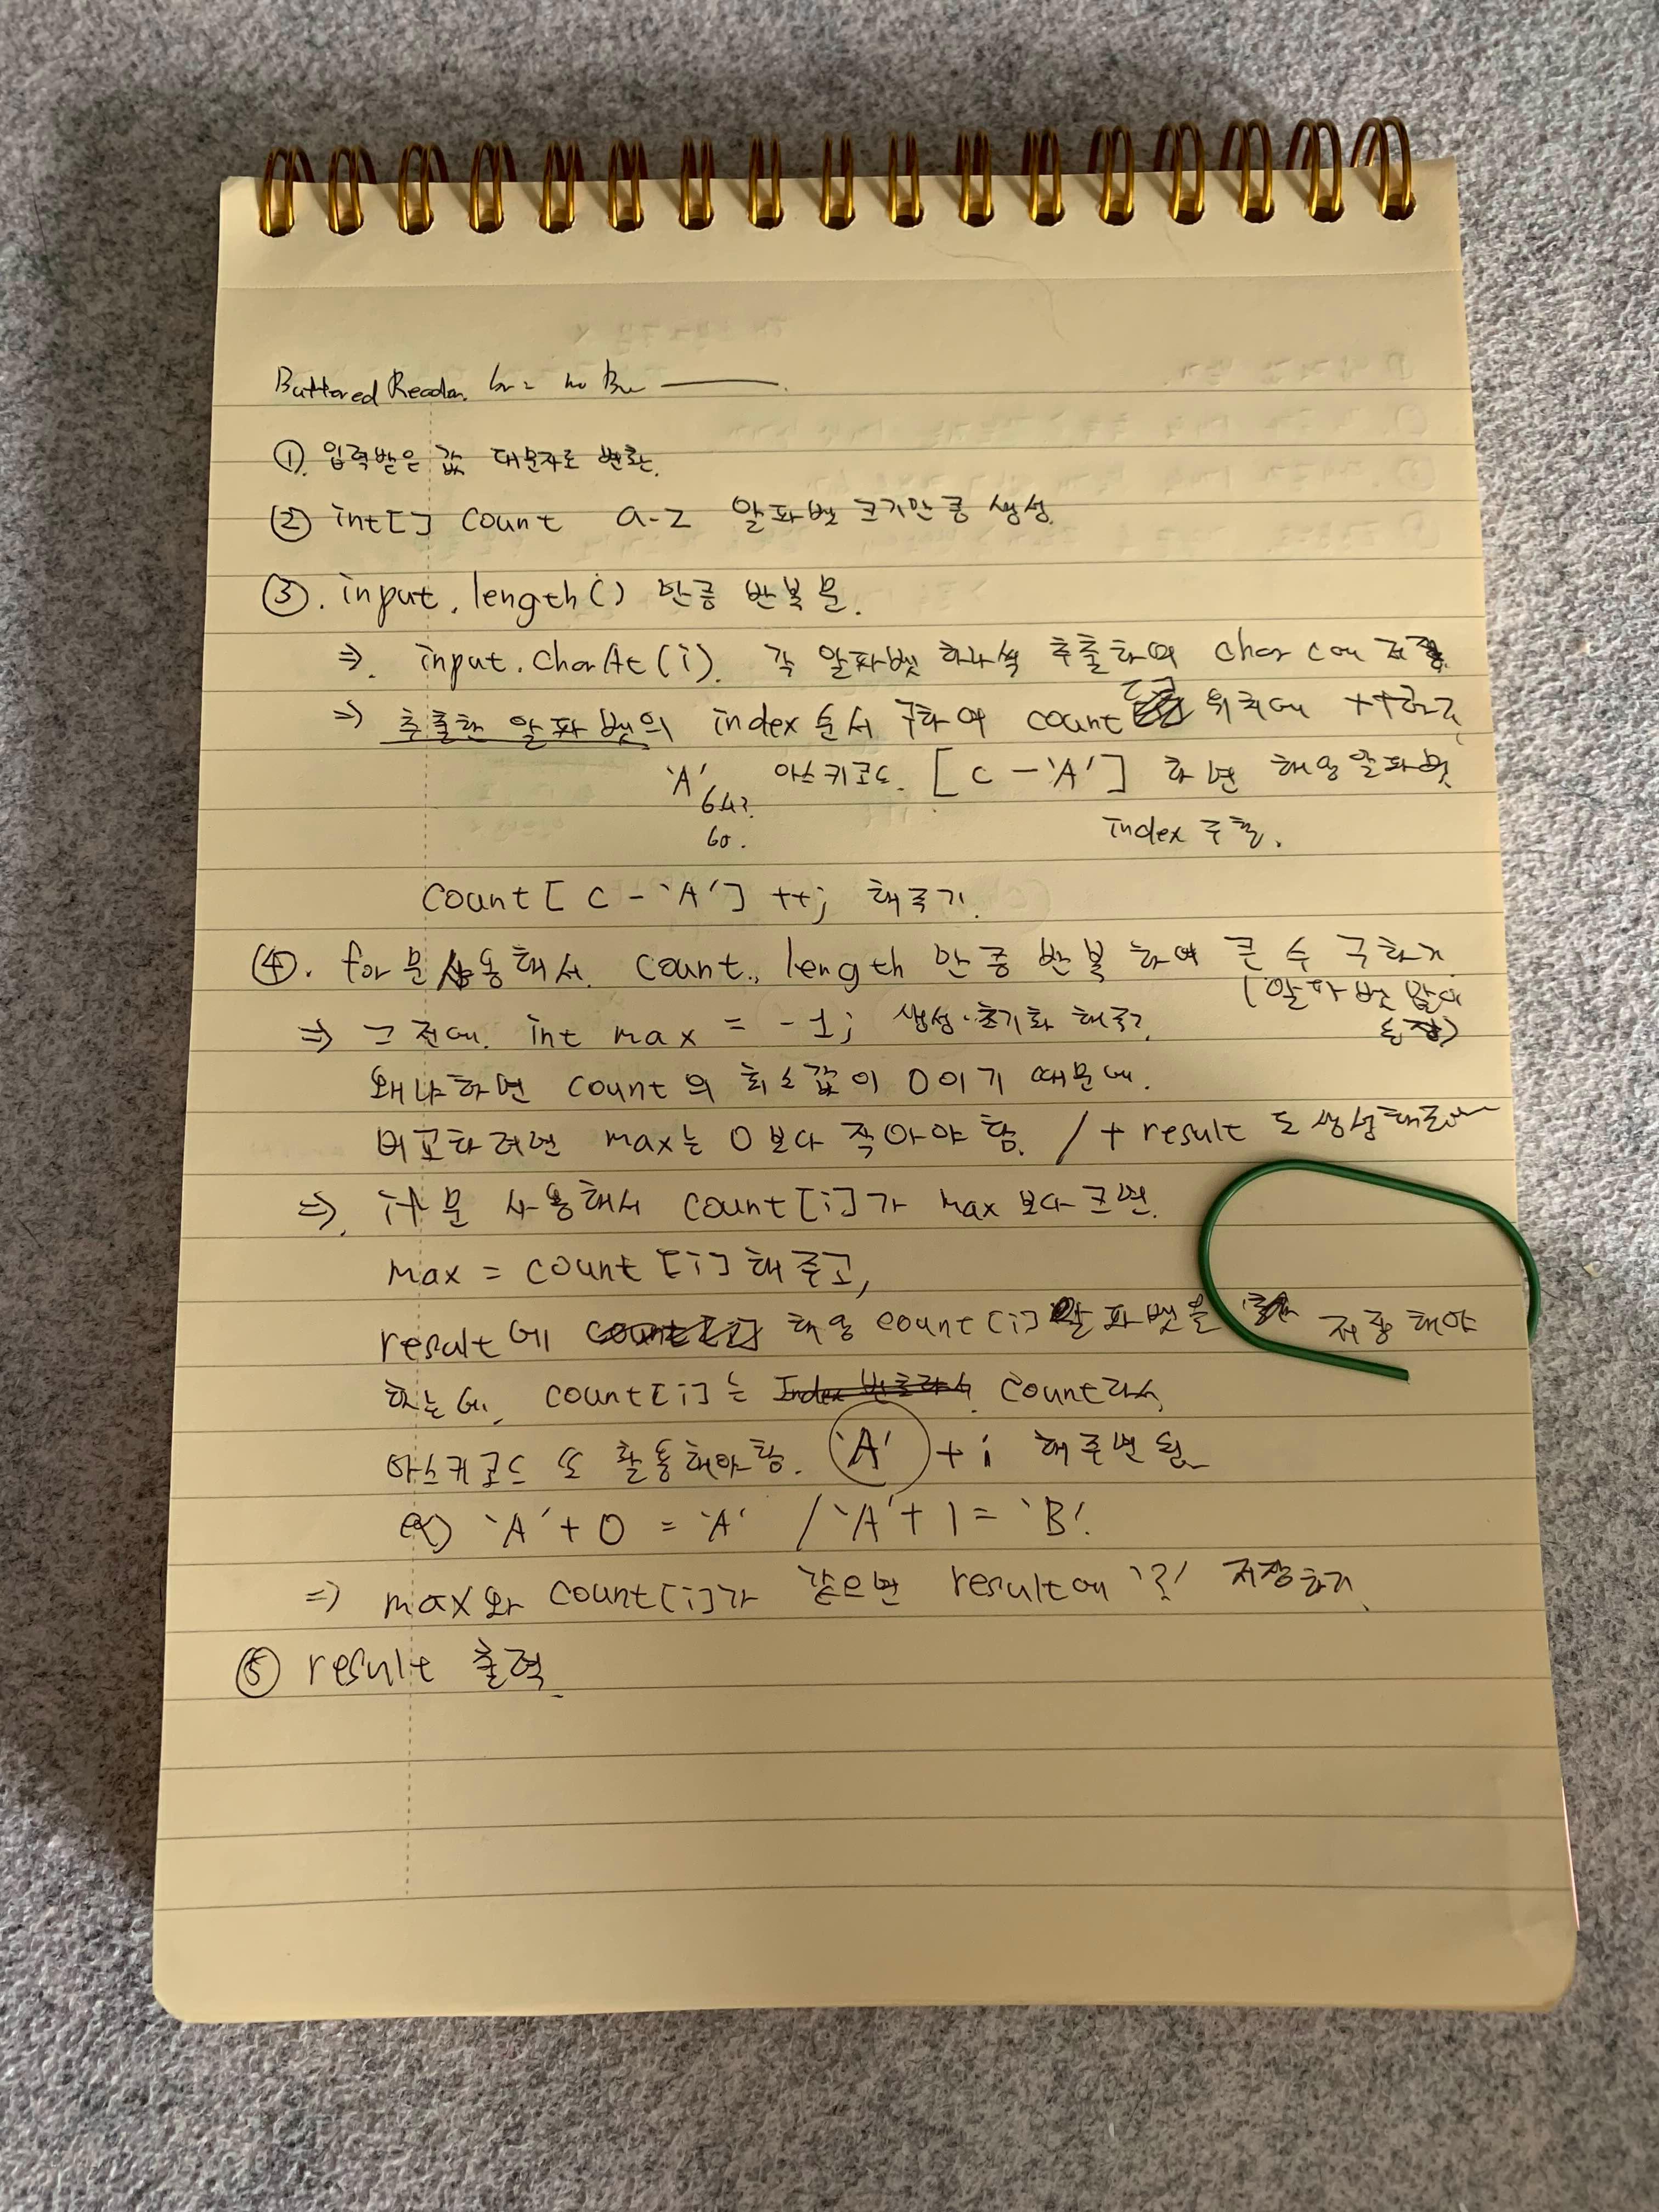 Buffered Reader br = new Bu
①. 입력받은 값 대문자로 변환.
② int[] count a-z 알파벳 크기만큼 생성.
③. input.length() 만큼 반복문.
⇒. input.charAt(i). 각 알파벳 하나씩 추출하여 char c에 저장.
⇒ 추출한 알파벳의 index 순서 구하여 count [] 위치에 ++하고
'A' 아스키코드. [c-'A'] 하면 해당알파벳
64?
60. index 추출.
count[c-'A']++; 해주기.
④. for문 사용해서. count.length 만큼 반복하여 큰 수 구하기
(알파벳 많이
등장)
⇒ 그 전에. int max = -1; 생성·초기화 해주기.
왜냐하면 count의 최소값이 0이기 때문에.
비교하려면 max는 0보다 작아야 함. / + result도 생성해
⇒. if문 사용해서 count[i]가 max보다 크면.
max = count[i] 해주고,
result에 count[i] 해당 count[i] 알파벳을 저장해야
하는데, count[i]는 Index 번호라서 count라서,
아스키코드 또 활용해야함. 'A' + i 해주면 됨
ex) 'A'+0 = 'A' / 'A'+1 = 'B'.
⇒ max와 count[i]가 같으면 result에 '?' 저장하기.
⑤ result 출력.